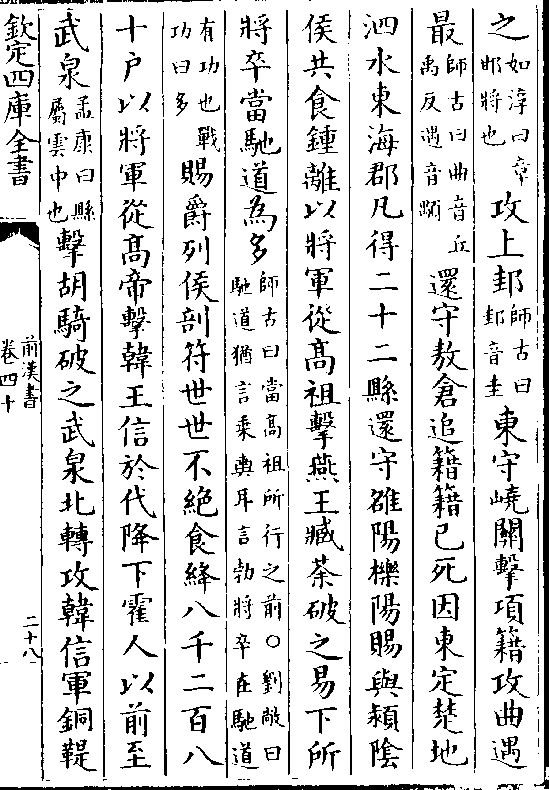 之如淳曰章邯將也攻上邽師古曰邽音圭東守嶢關擊項籍攻曲遇
最師古曰曲音丘禹反遇音顒還守敖倉追籍籍已死因東定楚地
泗水東海郡凡得二十二縣還守雒陽櫟陽賜與潁隂
侯共食鍾離以將軍從高祖擊燕王臧荼破之易下所
將卒當馳道為多師古曰當高祖所行之前○劉敞曰馳道猶言乗輿耳言勃將卒在馳道
有功也戰功曰多賜爵列侯剖符世世不絶食絳八千二百八
十户以將軍從高帝擊韓王信於代降下霍人以前至
武泉孟康曰縣屬雲中也擊胡騎破之武泉北轉攻韓信軍銅鞮
欽定四庫全書
前漢書
卷四十
二十八